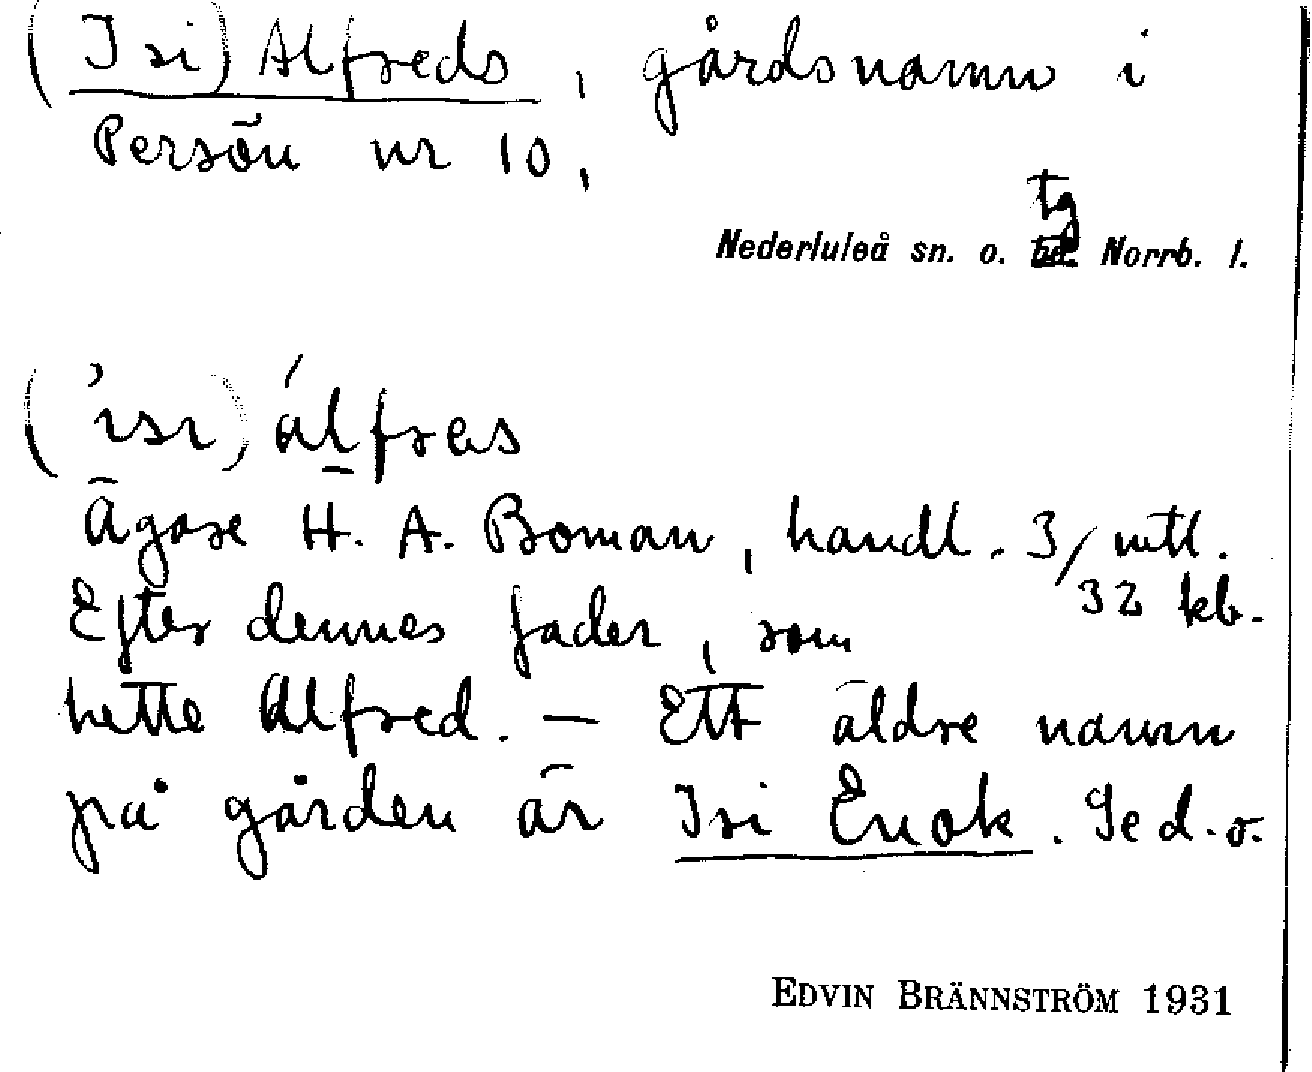 (Isi) Alfreds, gårdsnamn i
Persön nr 10,
Nederluleå sn. o. tg Norrb. l.
álfras
Ägare H. A. Boman, handl. 3/32 mtl.
kb.
Efter dennes fader, som
hette Alfred. — Ett äldre namn
på gården är Isi Enok. Se d. o.
EDVIN BRÄNNSTRÖM 1931